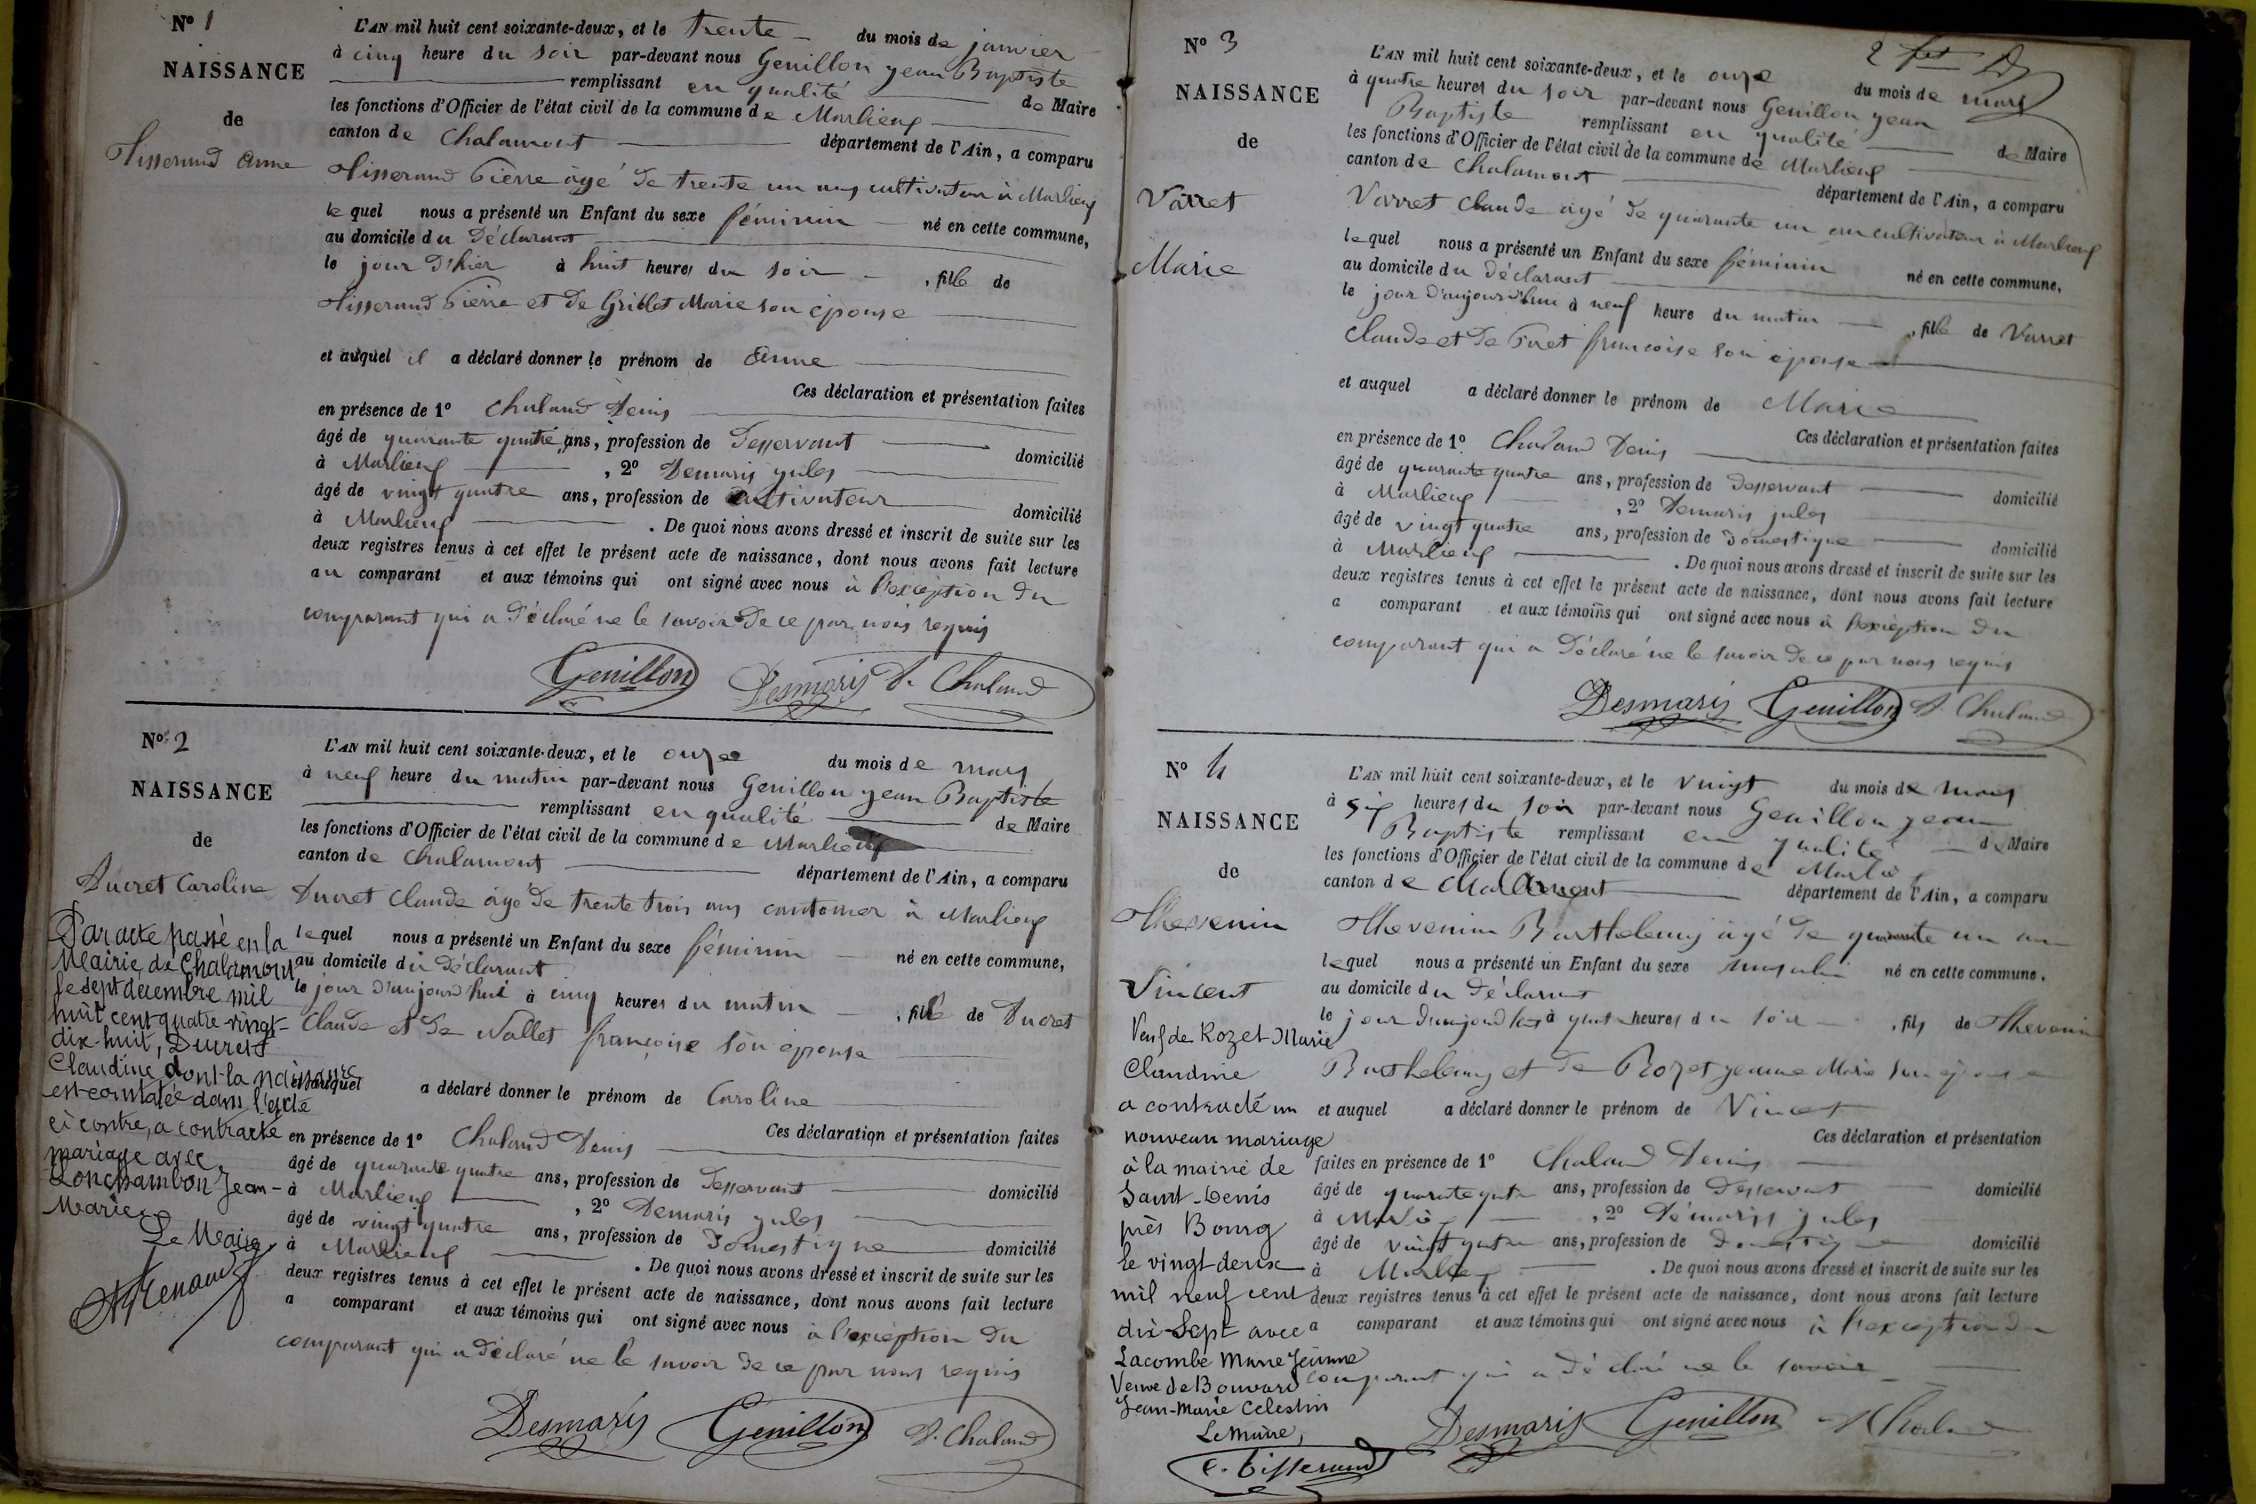 N° 1
NAISSANCE
de
Tisserand Anne
L'AN mil huit cent soixante-deux, et le trente du mois de janvier
à cinq heure du soir par-devant nous Genillon jean Baptiste
remplissant en qualité de Maire
les fonctions d'Officier de l'état civil de la commune de Marlieux
canton de Chalamont département de l'Ain, a comparu
Tisserand Pierre âgé de trente un ans cultivateur à Marlieux
lequel nous a présenté un Enfant du sexe féminin né en cette commune,
au domicile du déclarant
le jour d'hier à huit heures du soir , fille de
Tisserand Pierre et de Grillet Marie son épouse
et auquel il a déclaré donner le prénom de Anne
Ces déclaration et présentation faites
en présence de 1° Chaland Denis
âgé de quarante quatre ans, profession de Desservant domicilié
à Marlieux , 2° Demaris jules
âgé de vingt quatre ans, profession de cultivateur domicilié
à Marlieux . De quoi nous avons dressé et inscrit de suite sur les
deux registres tenus à cet effet le présent acte de naissance, dont nous avons fait lecture
au comparant et aux témoins qui ont signé avec nous à l'exception du
comparant qui a déclaré ne le savoir de ce par nous requis
Genillon Desmaris D. Chaland
N° 2
NAISSANCE
de
Ducret Caroline
Par acte passé en la
Mairie de Chalamont
le sept décembre mil
huit cent quatre-vingt-
dix-huit, Ducret
Claudine dont la naissance
est constatée dans l'acte
ci contre, a contracté
mariage avec
Lonchambon Jean-
Marie
Le Maire
L'AN mil huit cent soixante-deux, et le onze du mois de mars
à neuf heure du matin par-devant nous Genillon jean Baptiste
remplissant en qualité de Maire
les fonctions d'Officier de l'état civil de la commune de Marlieux
canton de Chalamont département de l'Ain, a comparu
Ducret Claude âgé de trente trois ans cantonier à Marlieux
lequel nous a présenté un Enfant du sexe féminin né en cette commune,
au domicile du déclarant
le jour d'aujourd'hui à cinq heures du matin , fille de Ducret
Claude et de Nallet françoise son épouse
et auquel a déclaré donner le prénom de Caroline
Ces déclaration et présentation faites
en présence de 1° Chaland Denis
âgé de quarante quatre ans, profession de Desservant domicilié
à Marlieux , 2° Demaris jules
âgé de vingt quatre ans, profession de Domestique domicilié
à Marlieux . De quoi nous avons dressé et inscrit de suite sur les
deux registres tenus à cet effet le présent acte de naissance, dont nous avons fait lecture
a comparant et aux témoins qui ont signé avec nous à l'exception du
comparant qui a déclaré ne le savoir de ce par nous requis
Desmaris Genillon D. Chaland
N° 3
NAISSANCE
de
Varret
Marie
L'AN mil huit cent soixante-deux, et le onze du mois de mars
à quatre heures du soir par-devant nous Genillon jean
Baptiste remplissant en qualité de Maire
les fonctions d'Officier de l'état civil de la commune de Marlieux
canton de Chalamont département de l'Ain, a comparu
Varret Claude âgé de quarante un an cultivateur à Marlieux
lequel nous a présenté un Enfant du sexe féminin né en cette commune,
au domicile du déclarant
le jour d'aujourd'hui à neuf heure du matin , fille de Varret
Claude et de Puret françoise son épouse
et auquel a déclaré donner le prénom de Marie
Ces déclaration et présentation faites
en présence de 1° Chaland Denis
âgé de quarante quatre ans, profession de Desservant domicilié
à Marlieux , 2° Demaris jules
âgé de vingt quatre ans, profession de domestique domicilié
à Marlieux . De quoi nous avons dressé et inscrit de suite sur les
deux registres tenus à cet effet le présent acte de naissance, dont nous avons fait lecture
a comparant et aux témoins qui ont signé avec nous à l'exception du
comparant qui a déclaré ne le savoir de ce par nous requis
Desmaris Genillon D. Chaland
N° 4
NAISSANCE
de
Thevenin
Vincent
Veuf de Rozet Marie
Claudine
a contracté un
nouveau mariage
à la mairie de
Saint-Denis
près Bourg
le vingt-deux
mil neuf cent
dix-Sept avec
Lacombe Marie Jeanne
Veuve de Bouvard
Jean-Marie Celestin
Le Maire,
C. Tisserand
L'AN mil huit cent soixante-deux, et le vingt du mois de mars
à six heures du soir par-devant nous Genillon jean
Baptiste remplissant en qualité de Maire
les fonctions d'Officier de l'état civil de la commune de Marlieux
canton de Chalamont département de l'Ain, a comparu
Thevenin Barthelemy âgé de quarante un an
lequel nous a présenté un Enfant du sexe masculin né en cette commune,
au domicile du déclarant
le jour d'aujourd'hui à quatre heures du soir , fils de Thevenin
Barthelemy et de Rozet jeanne Marie son épouse
et auquel a déclaré donner le prénom de Vincent
Ces déclaration et présentation
faites en présence de 1° Chaland Denis
âgé de quarante quatre ans, profession de Desservant domicilié
à Marlieux , 2° Démaris jules
âgé de vingt quatre ans, profession de Domestique domicilié
à Marlieux . De quoi nous avons dressé et inscrit de suite sur les
deux registres tenus à cet effet le présent acte de naissance, dont nous avons fait lecture
a comparant et aux témoins qui ont signé avec nous à l'exception du
comparant qui a déclaré ne le savoir
Desmaris Genillon D. Chaland